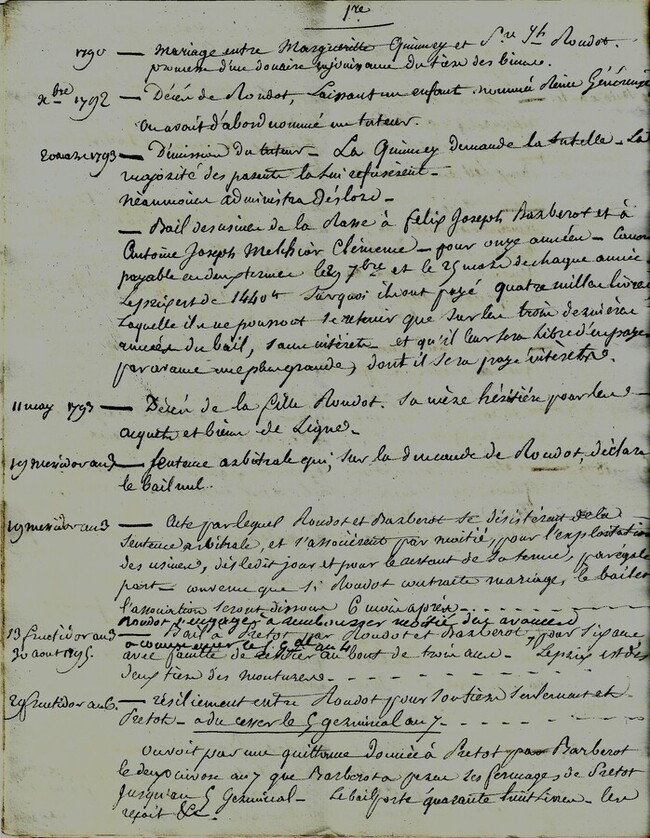 1re
1790 — Mariage entre Marguerite Quinney et Sre Jh Roudot.
promesse d'un douaire en jouissance du tiers des biens.
xbre 1792 — Décéd de Roudot, laissant un enfant nommée Reine Généreuse
On avait d'abord nommé un tuteur.
20 mars 1793 — Démission du tuteur — La Quinney demande la tutelle — La
majorité des parents la lui refusèrent —
néanmoins administra dèslors —
— Bail des usines de la Rasse à Felix Joseph Barberot et à
Antoine Joseph Melchior Clémence — pour onze années — Canon
payable en deux termes les 29 7bre et le 25 mars de chaque année —
Le prix est de 1440 # Surquoi ils ont payé quatre mille livres
Laquelle ils ne pourront retenir que sur les trois dernières
années du bail, sans intérêts — et qu'il leur sera libre d'en payer
par avance une plus grande, dont il sera payé intérêts.
11 may 1793 — Décéd de la fille Roudot. Sa mère héritière pour les
acquets et biens de Ligne —
19 messidor an 3 — Sentence arbitrale qui, sur la demande de Roudot, déclare
le bail nul.
19 messidor an 3 — Acte par lequel Roudot et Barberot se désistèrent de la
Sentence arbitrale, et s'associèrent par moitié, pour l'exploitation
des usines, dès ledit jour et pour le restant de sa tenue, par égale
part — convenu que si Roudot contracte mariage, le bail et
l'association seront dissous 6 mois après —
Roudot s'engage à rembourser moitié des avances
13 fructidor an 3 — Bail à Pretot par Roudot et Barberot, pour six ans
à commencer le 5 gal an 4
30 aout 1795. avec faculté de résilier au bout de trois ans — Le prix est des
deux tiers des moutures —
29 fructidor an 6. — résiliement entre Roudot pour son tiers seulement et
Pretot — a du cesser le 5 germinal an 7 —
On voit par une quittance donnée à Pretot par Barberot
le deux nivose an 7 que Barberot a perçu les fermages de Pretot
jusqu'au 5 Germinal — Le bail porte quarante huit livres — les
reçoit &c.